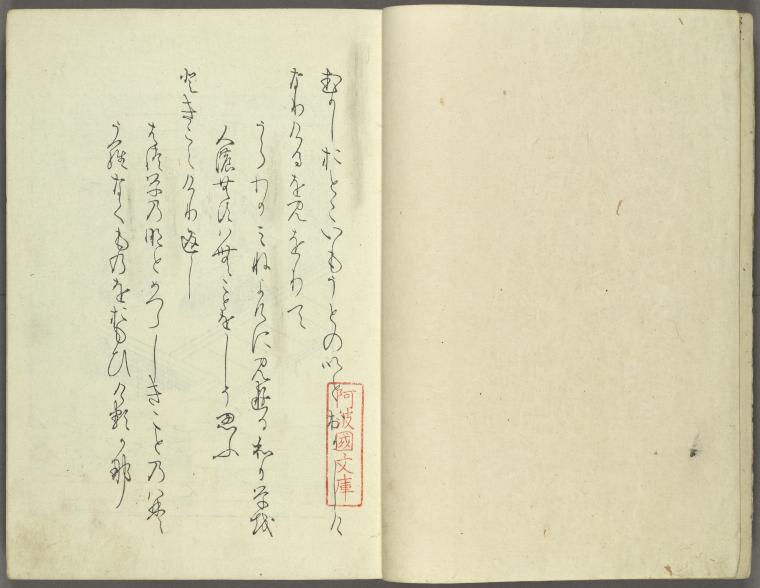 むかしおとこいもうとのいとおかしけ
なりけるを見をりて
うらわかみねよけに見ゆるわか草を
人のむすはむことをしそ思ふ
ときこえけり返し
はつ草のなとめつらしきことのはそ
うらなくものをおもひけるかな
阿波國文庫